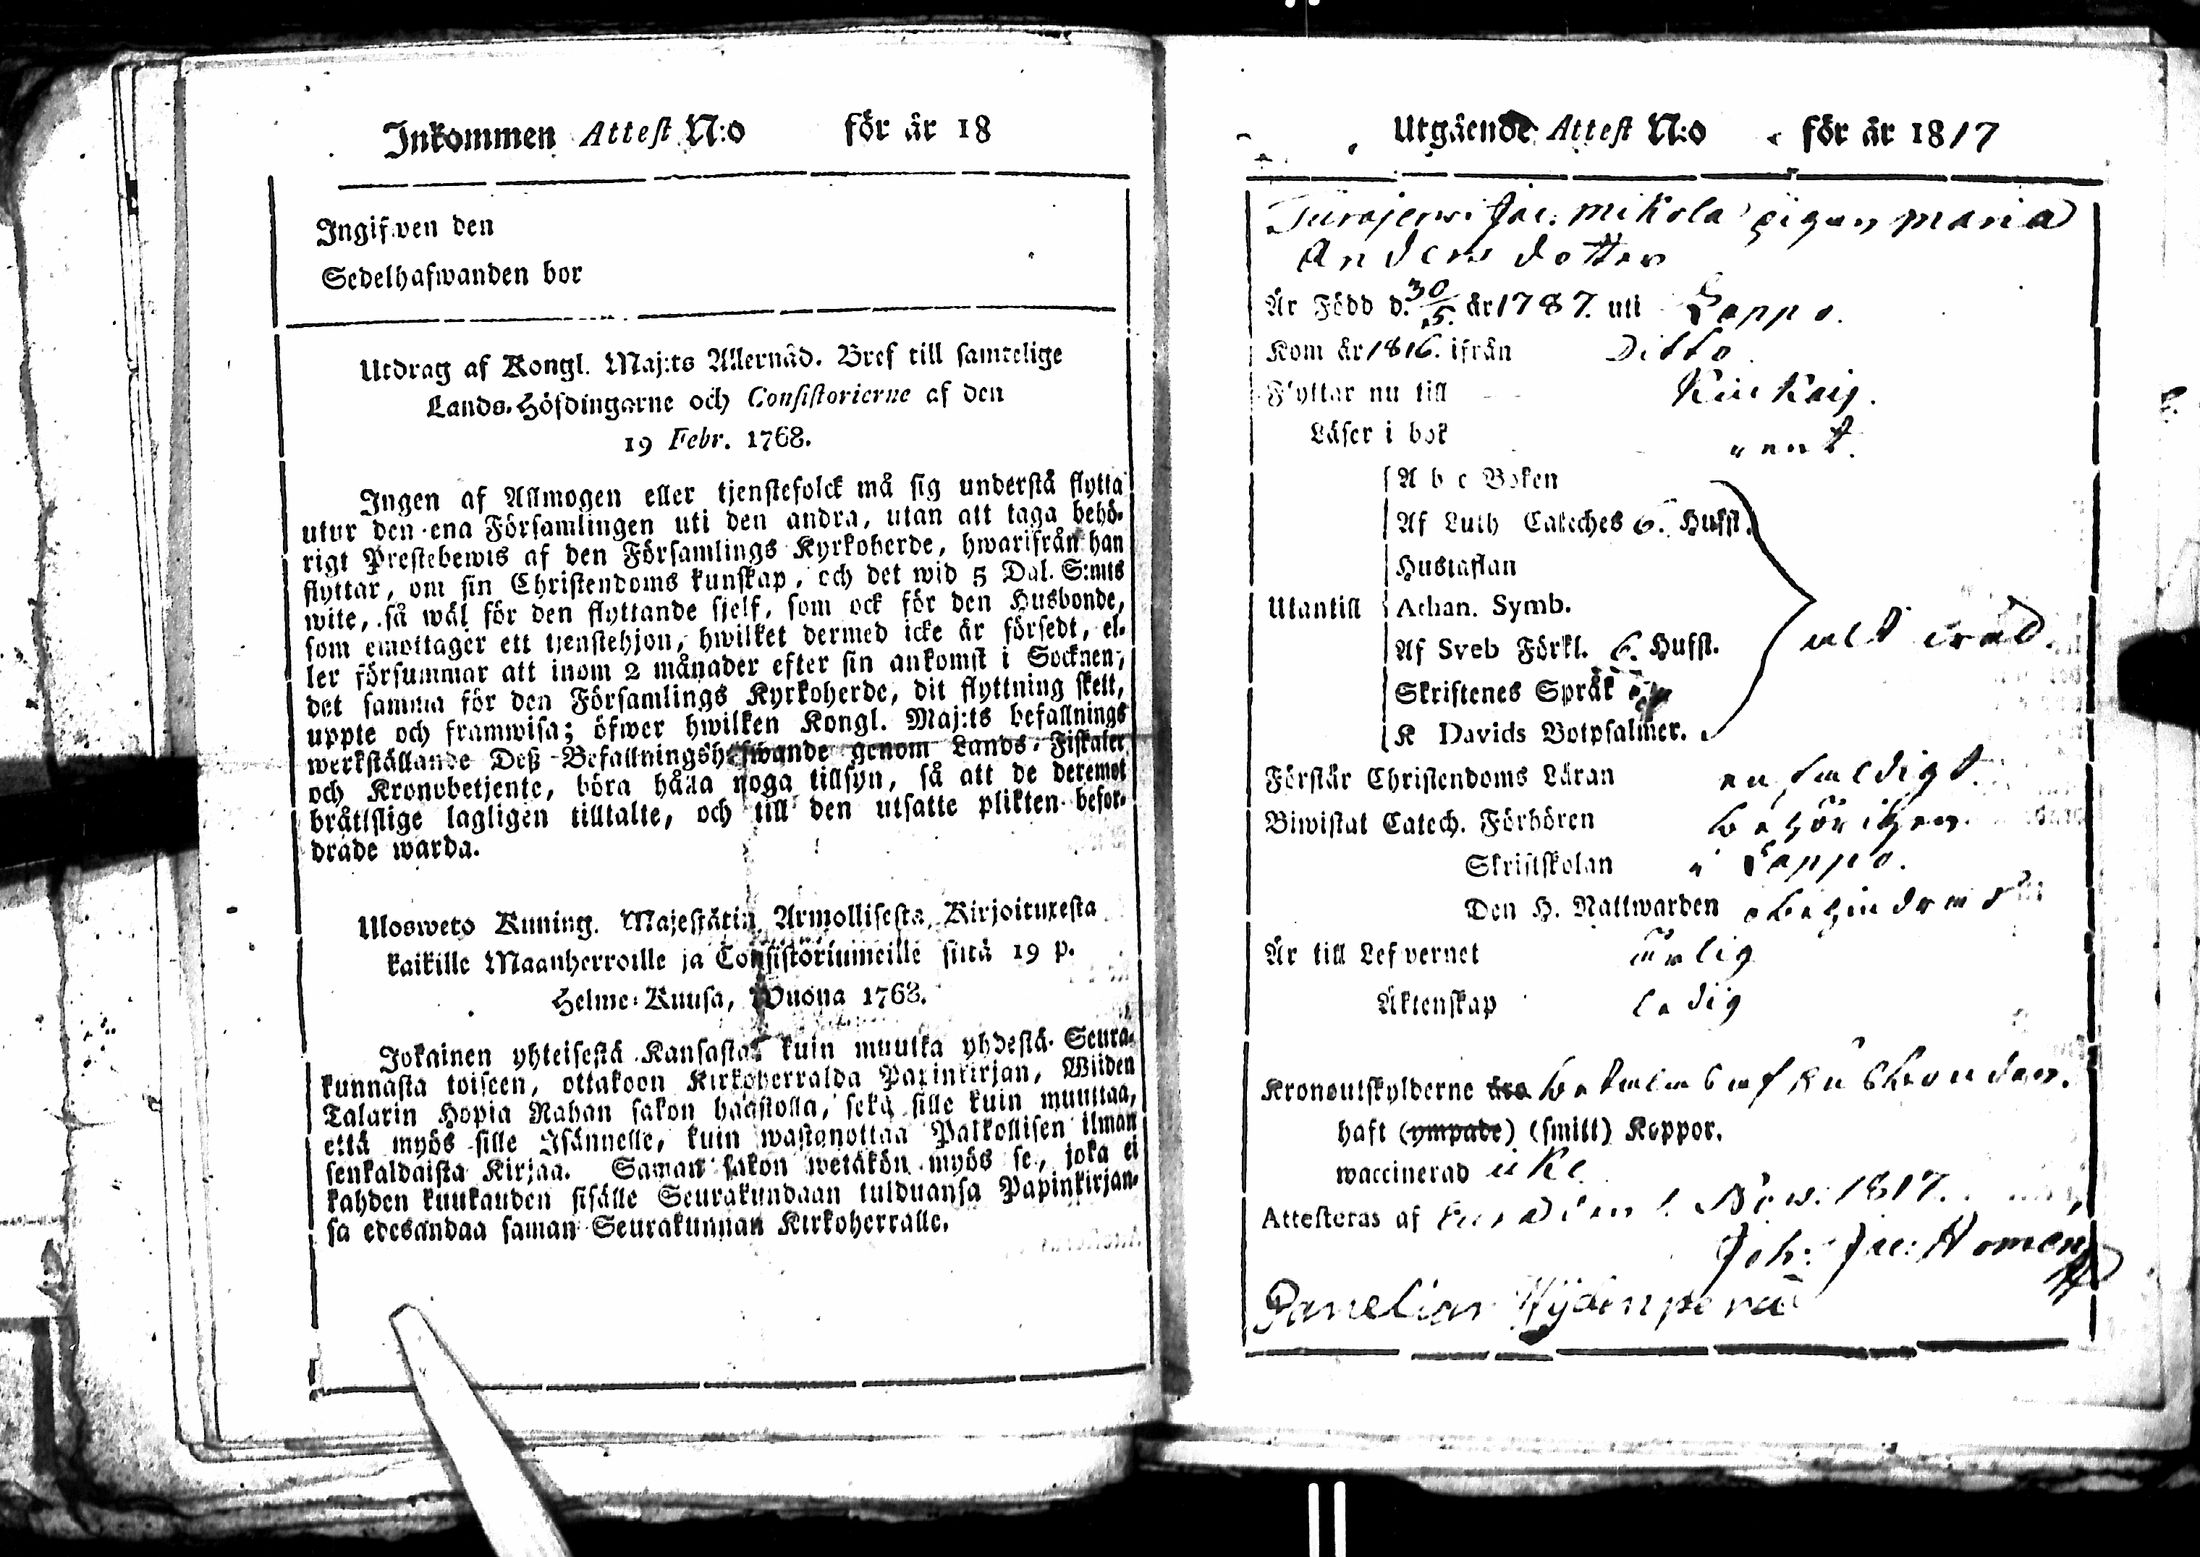 Inkommen Attest N:o för år 18
Ingifwen den
Sedelhafwanden bor
Utdrag af Kongl. Maj:ts Allernåd. Bref till samtelige
Lands-Höfdingarne och Consistorierne af den
19 Febr. 1768.
Ingen af Allmogen eller tjenstefolck må sig understå flytta
utur den ena Församlingen uti den andra, utan att taga behö-
rigt Prestebewis af den Församlings Kyrkoherde, hwarifrån han
flyttar, om sin Christendoms kunskap, och det wid 5 Dal. S:mts
wite, så wäl för den flyttande sjelf, som ock för den Husbonde,
som emottager ett tjenstehjon, hwilket dermed icke är försedt, el-
ler försummar att inom 2 månader efter sin ankomst i Socknen,
det samma för den Församlings Kyrkoherde, dit flyttning skett,
uppte och framwisa; öfwer hwilken Kongl. Maj:ts befallnings
werkställande Deß Befallningshafwande genom Lands-Fiskaler
och Kronobetjente, böra hålla noga tillsyn, så att de deremot
bråtlslige lagligen tilltalte, och till den utsatte plikten befor-
drade warda.
Ulosweto Kuning. Majestätin Armollisesta Kirjoituxesta
kaikille Maanherroille ja Consistoriumeille siitä 19 p.
Helme-Kuusa, Wuona 1768.
Jokainen yhteisestä Kansasta, kuin muutta yhdestä Seura-
kunnasta toiseen, ottakoon Kirkoherralda Papinkirjan, Wiiden
Talarin Hopia Rahan sakon haastolla, sekä sille kuin muuttaa,
että myös sille Isännelle, kuin wastanottaa Palkollisen ilman
senkaldaista Kirjaa. Saman sakon wetäkön myös se, joka ei
kahden kuukauden sisälle Seurakundaan tulduansa Papinkirjan-
sa edesandaa saman Seurakunnan Kirkoherralle.
Utgående Attest N:o för år 1817
Jac: Mikola pigan Maria
Anders dotter
Är Född d. 30/5. år 1787. uti Lappo.
Kom år 1816. ifrån Ditto
Flyttar nu till Kiukais.
Läser i bok rent.
A b c Boken
Af Luth Cateches 6. Hufst.
Hustaflan
Utantill Athan. Symb.
Af Sveb Förkl. 6. Hufst.
Skriftenes Språk
K Davids Botpsalmer.
Förstår Christendoms Läran enfaldigt.
Biwistat Catech. Förhören behörigen
Skriftskolan i Lappo.
Den H. Nattwarden obehindrad
Är till Lefvernet ärlig
Äktenskap ledig
Kronoutskylderne äro betalas af husbonden.
haft (ympade) (smitt) Koppor.
waccinerad icke
Attesteras af Eura den 1. Nov. 1817.
Joh: Jac: Homen
Panelian